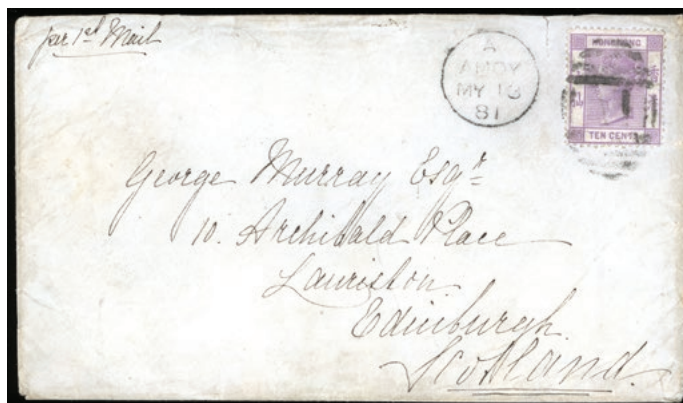 per 1st Mail
A
AMOY
MY 13
81
HONG KONG
TEN CENTS
George Murray Esqr
10. Archibald Place
Lauriston
Edinburgh
Scotland